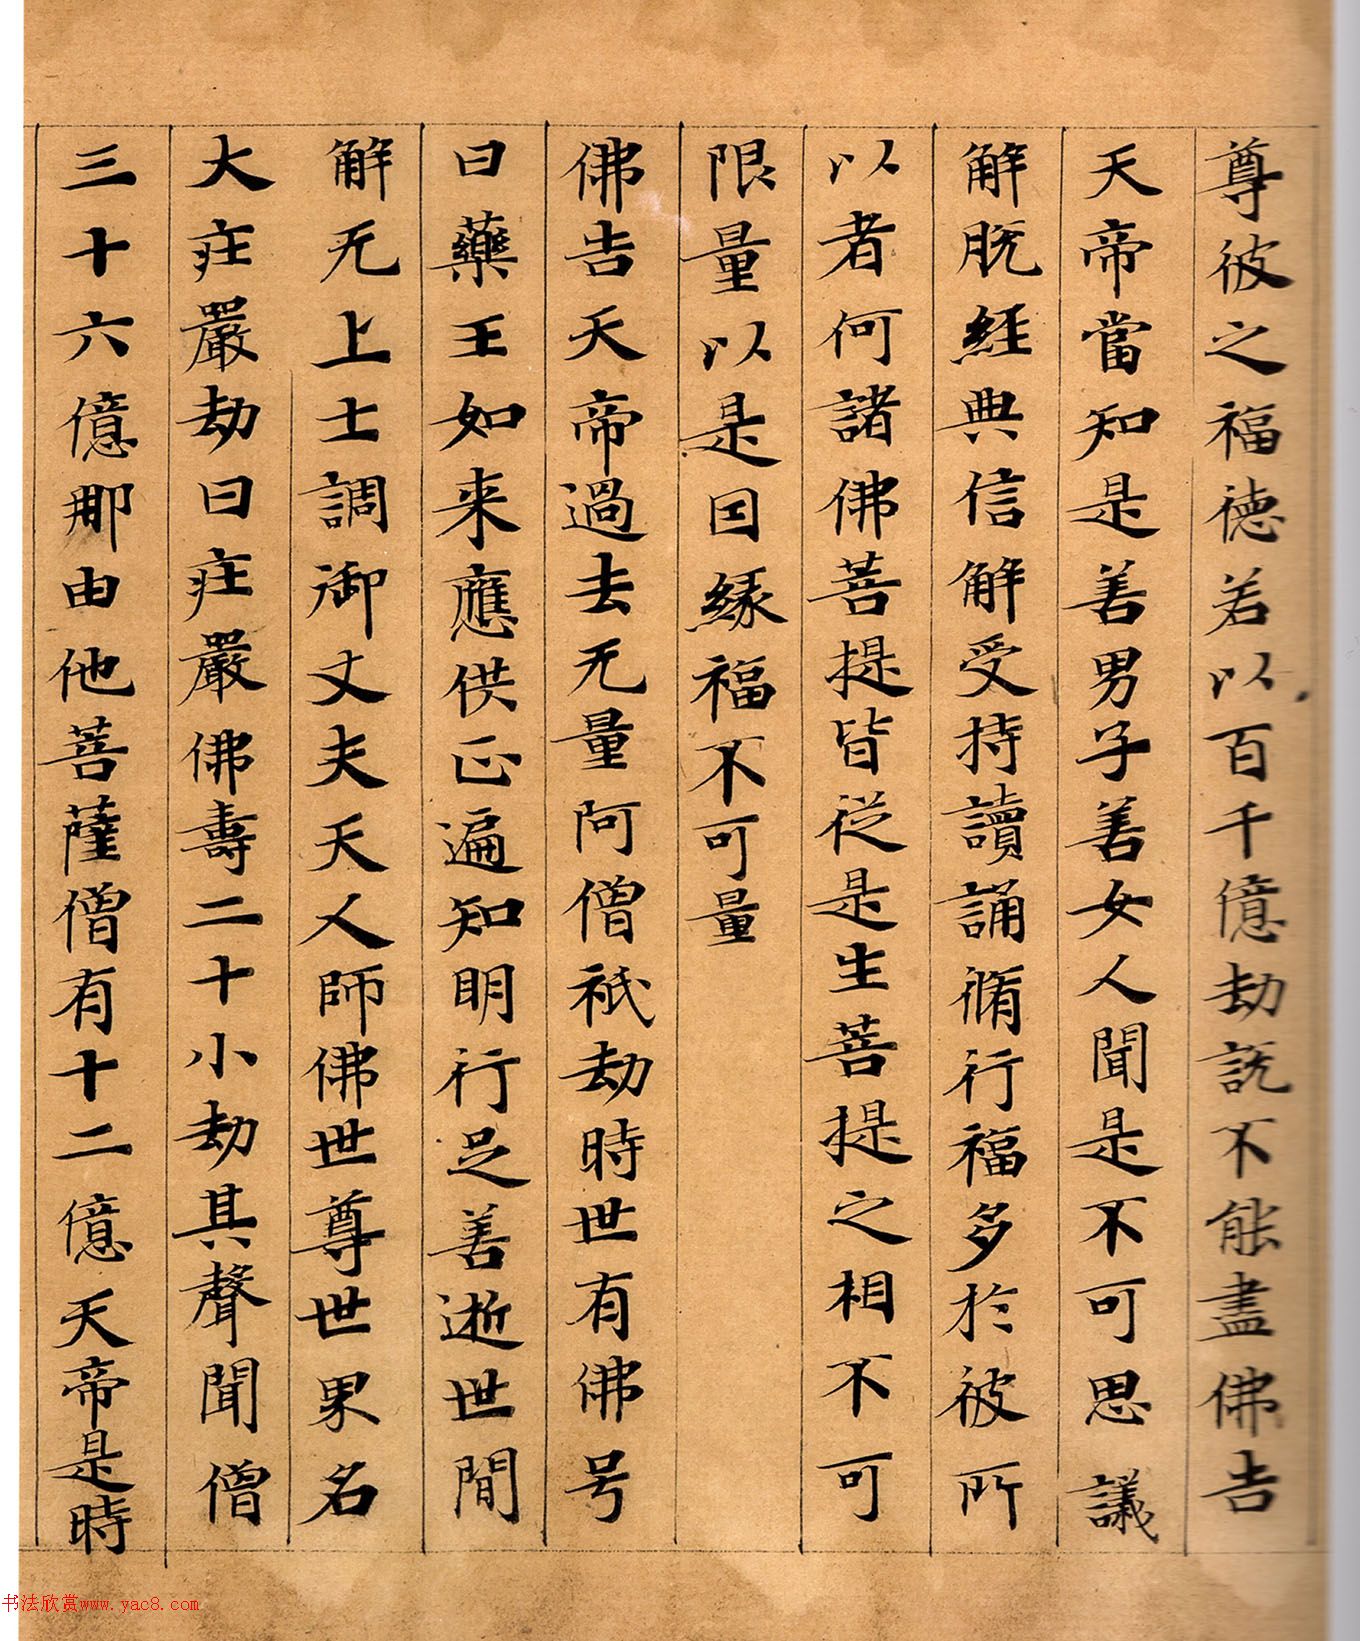 尊彼之福德若以百千億劫説不能盡佛告
天帝當知是善男子善女人聞是不可思議
解脱經典信解受持讀誦脩行福多於彼所
以者何諸佛菩提皆從是生菩提之相不可
限量以是因緣福不可量
佛告天帝過去无量阿僧祇劫時世有佛号
曰藥王如来應供正遍知明行足善逝世間
解无上士調御丈夫天人師佛世尊世界名
大莊嚴劫曰莊嚴佛壽二十小劫其聲聞僧
三十六億那由他菩薩僧有十二億天帝是時
书法欣赏www.yac8.com